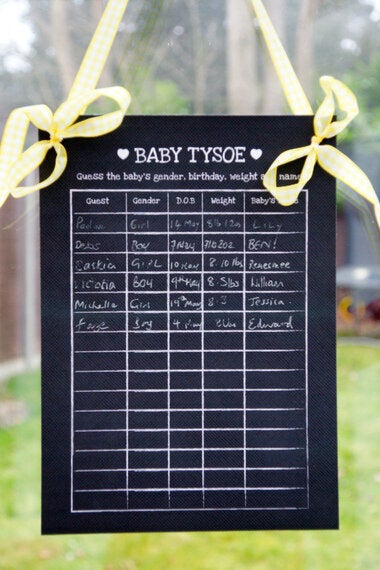 BABY TYSOE
Guess the baby's gender, birthday, weight and name
Guest Gender D.O.B Weight Baby's
Girl 14 May 8lb 12oz LiLy
Debs Boy 7 May 7lb 2oz BEN!
Saskia GiRL 10 May 8.10lbs Renesmee
Victoria BOY 9th May 8.5lbs William
Michelle Girl 19th May 8.3 Jessica
Boy 4 May Edward